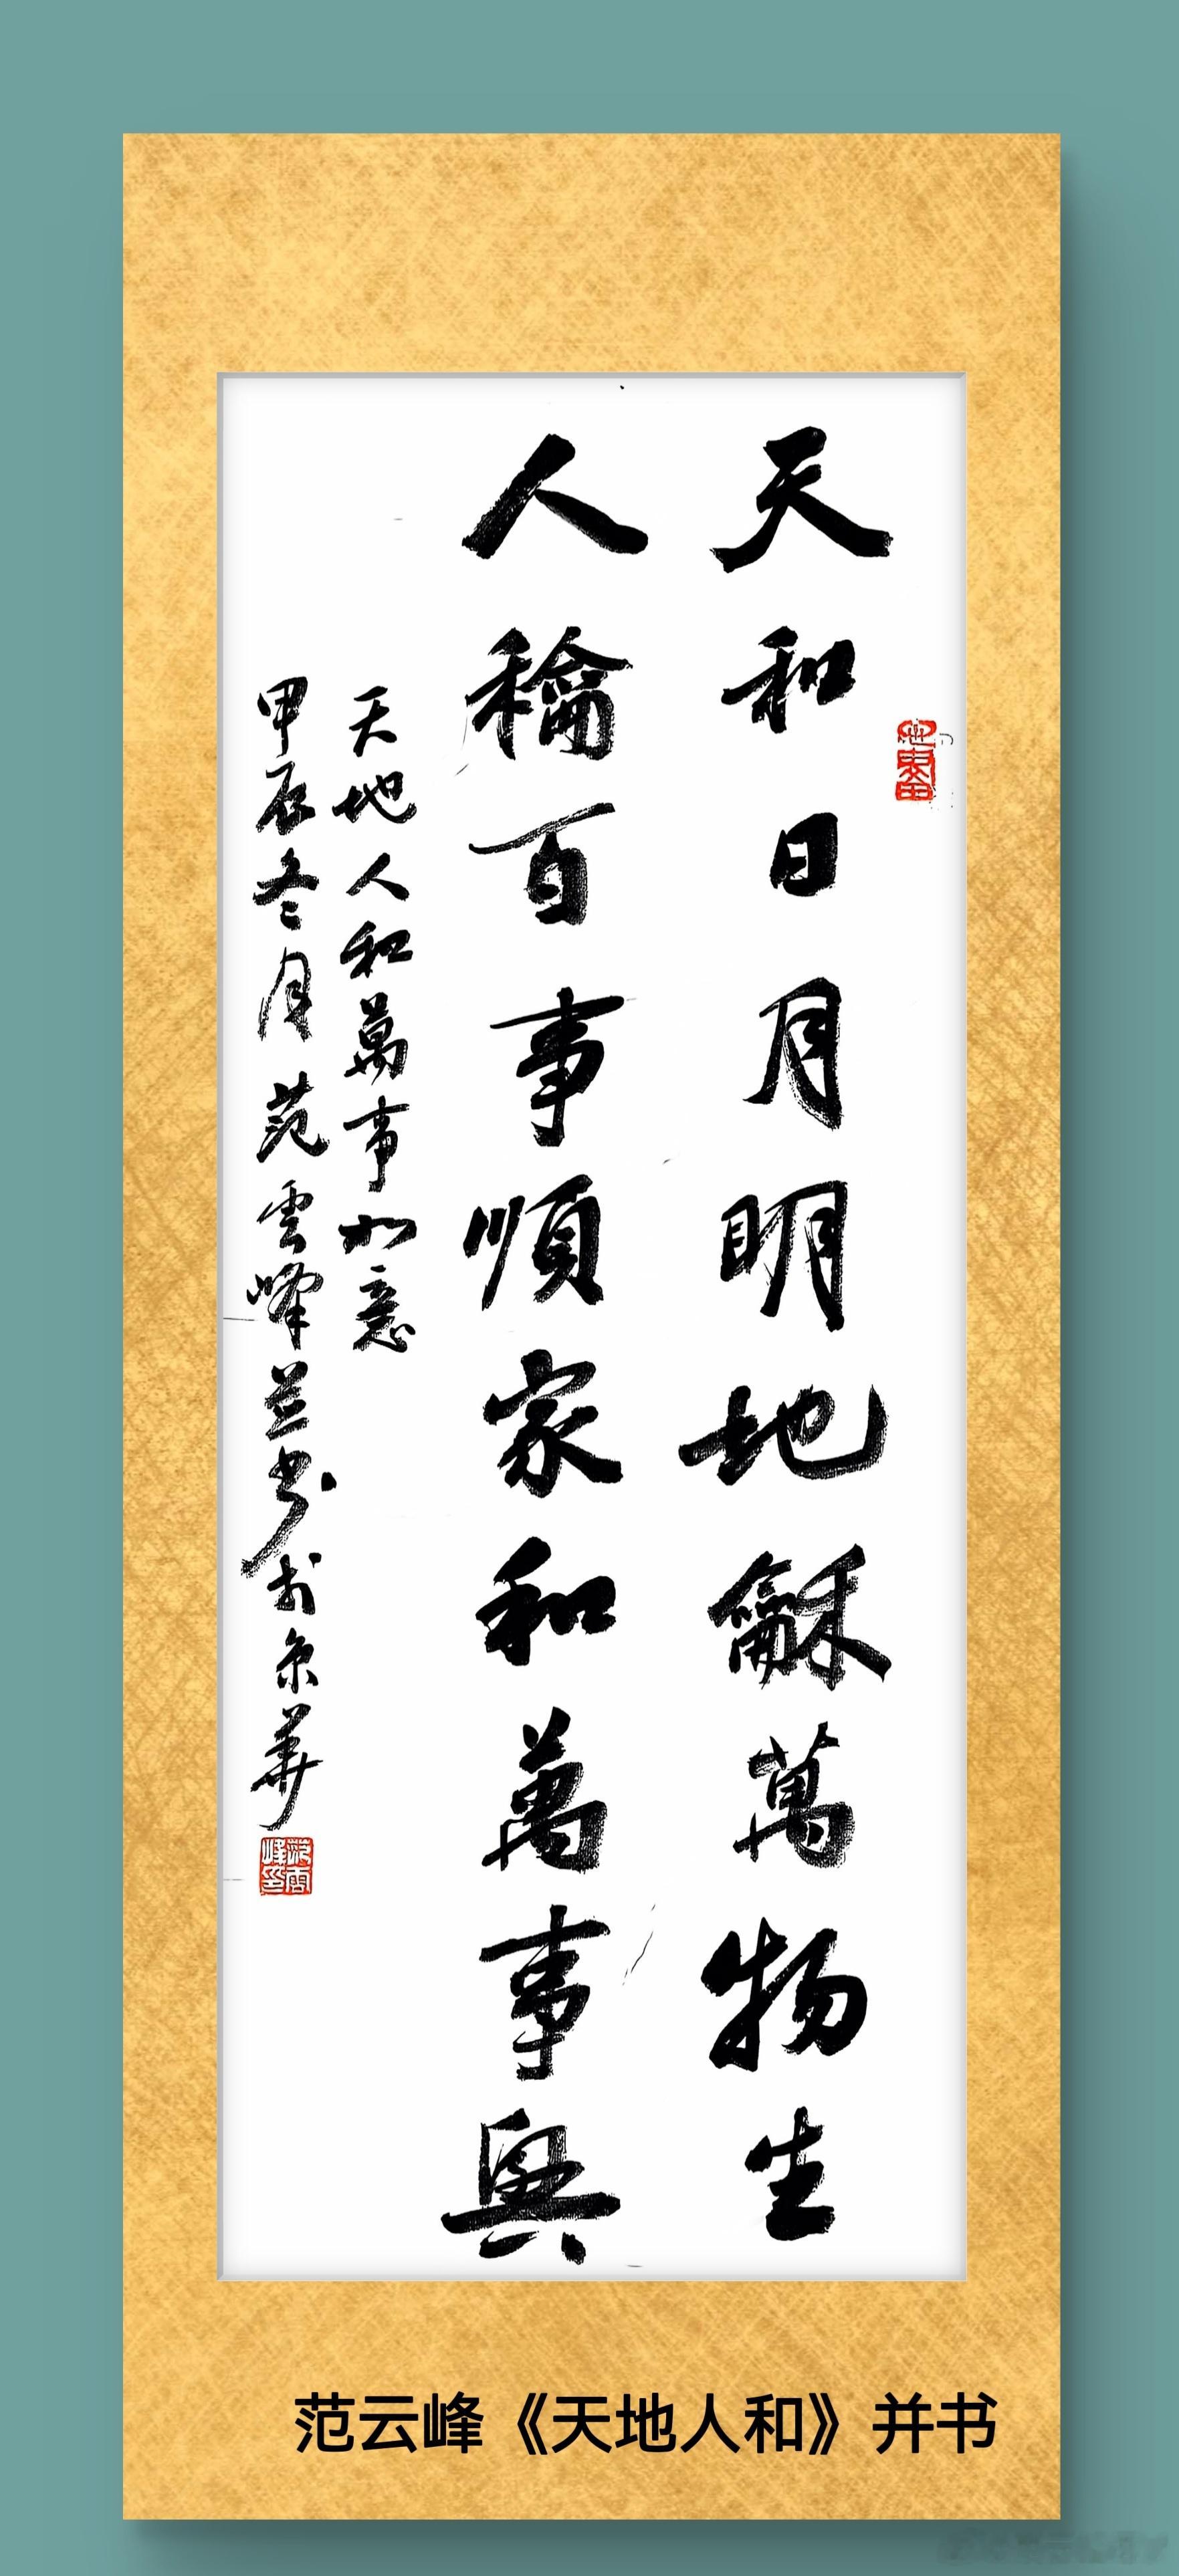 天和日月明地龢萬物生
人龢百事順家和萬事興
天地人和萬事如意
甲辰冬月范雲峰并书於京華
范雲峰印
范云峰《天地人和》并书